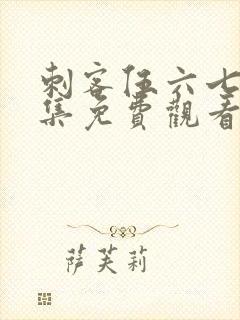 刺客伍六七
集免費觀看
萨芙莉